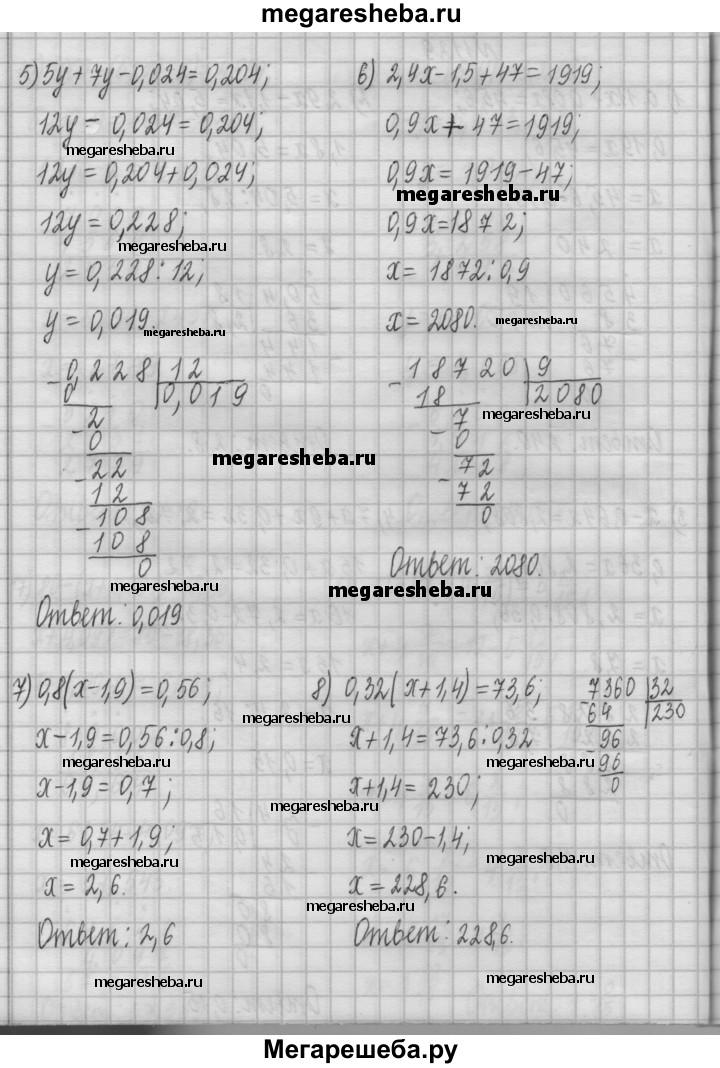 megaresheba.ru
5) 5y + 7y - 0,024 = 0,204;
12y - 0,024 = 0,204;
megaresheba.ru
12y = 0,204 + 0,024;
12y = 0,228;
megaresheba.ru
y = 0,228 : 12;
y = 0,019.
megaresheba.ru
0,228 | 12
0 | 0,019
- 2
0
- 22
12
- 108
108
0
megaresheba.ru
Ответ: 0,019
6) 2,4x - 1,5 + 47 = 1919;
0,9x + 47 = 1919;
0,9x = 1919 - 47;
megaresheba.ru
0,9x = 1872;
x = 1872 : 0,9
x = 2080.
megaresheba.ru
- 18720 | 9
18 | 2080
megaresheba.ru
- 7
0
- 72
72
0
megaresheba.ru
Ответ: 2080.
megaresheba.ru
7) 0,8(x - 1,9) = 0,56;
x - 1,9 = 0,56 : 0,8;
megaresheba.ru
x - 1,9 = 0,7;
x = 0,7 + 1,9;
megaresheba.ru
x = 2,6.
Ответ: 2,6
megaresheba.ru
8) 0,32(x + 1,4) = 73,6;
megaresheba.ru
x + 1,4 = 73,6 : 0,32
megaresheba.ru
x + 1,4 = 230;
megaresheba.ru
x = 230 - 1,4;
megaresheba.ru
x = 228,6.
megaresheba.ru
Ответ: 228,6.
megaresheba.ru
- 7360 | 32
64 | 230
- 96
96
0
Мегарешеба.ру